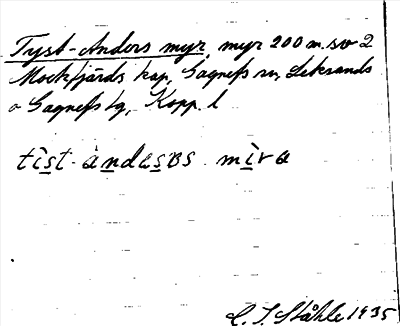 Tyst-Anders myr, myr 200 m. sv 2
Mockfjärds kap, Gagnefs sn, Leksands
o Gagnefs tg, Kopp. l
tìst-ándæsʊs mìra
C. I. Ståhle 1935